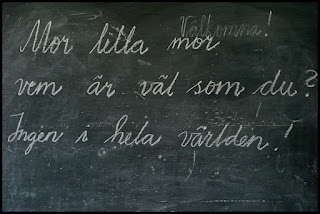 Välkomna!
Mor litla mor
vem är väl som du?
Ingen i hela världen!